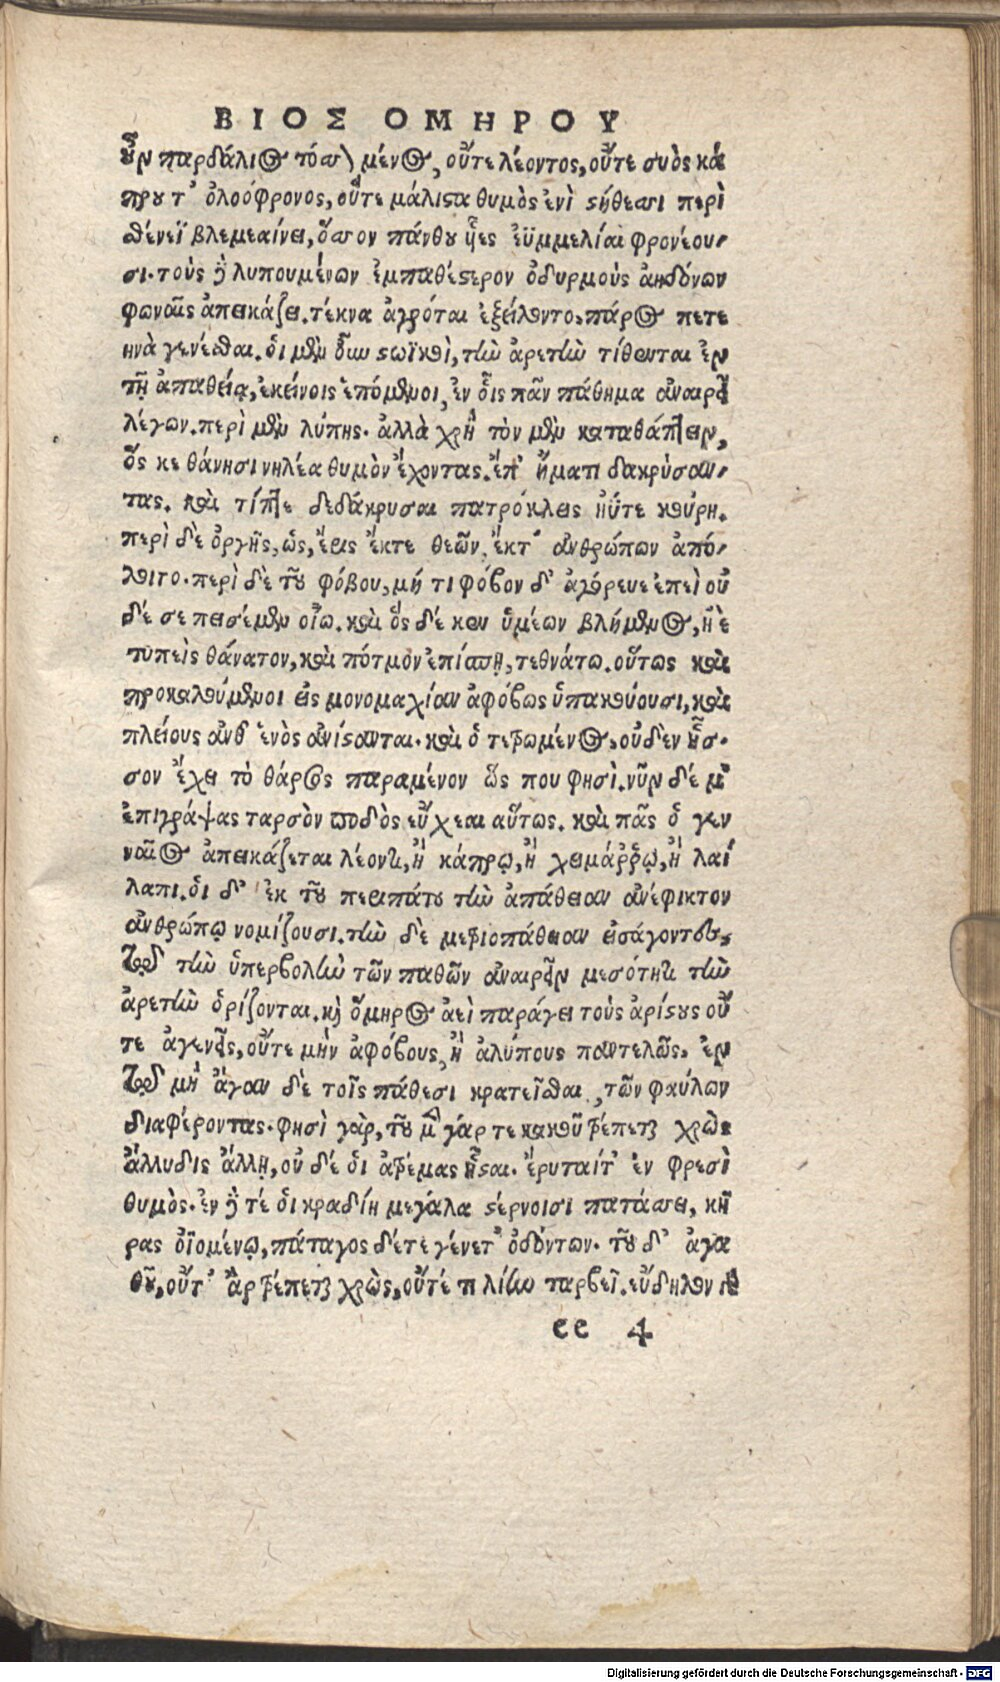 ΒΙΟΣ ΟΜΗΡΟΥ
οὖν παρδάλιος τόσσον μένος, οὔτε λέοντος, οὔτε συὸς κά
πρου τ' ὀλοόφρονος, οὗτε μάλιστα θυμὸς ἐνὶ στήθεσσι περὶ
σθένεϊ βλεμεαίνει, ὅσσον πάνθου ἧες ἐϋμμελίαι φρονέου-
σι. τοὺς δὲ λυπουμένων ἐμπαθέστερον ὀδυρμοὺς ἀηδόνων
φωναῖς ἀπεικάζει. τέκνα ἀγρόται ἐξείλοντο, πάρος πετε
ηνὰ γενέσθαι. ὁι μὲν οὖν στωϊκοὶ, τὴν ἀρετὴν τίθενται ἐν
τῇ ἀπαθείᾳ, ἐκείνοις ἑπόμενοι, ἐν οἷς πᾶν πάθημα ἀναιρεῖ
λέγων. περὶ μὲν λύπης. ἀλλὰ χρὴ τὸν μὲν καταθάπτειν,
ὅς κε θάνησι νηλέα θυμὸν ἔχοντας. ἔπ' ἤματι δακρύσαν-
τας. καὶ τίπτε δεδάκρυσαι πατρόκλεις ἠΰτε κούρη.
περὶ δὲ ὀργῆς, ὡς, ἔρις ἔκτε θεῶν, ἔκτ' ἀνθρώπων ἀπό-
λοιτο. περὶ δὲ τοῦ φόβου, μή τι φόβον δ' ἀγόρευε ἐπεὶ οὐ
δέ σε πεισέμεν οἴω. καὶ ὅς δέ κεν ὑμέων βλήμενος, ἠὲ
τυπεὶς θάνατον, καὶ πότμον ἐπίσπῃ, τεθνάτω. οὕτως καὶ
προκαλούμενοι εἰς μονομαχίαν ἀφόβως ὑπακούουσι, καὶ
πλείους ἀνθ' ἑνὸς ἀνίστανται. καὶ ὁ τετρωμένος, οὐδὲν ἧσ-
σον ἔχει τὸ θάρσος παραμένον ὥς που φησὶ. νῦν δέ μ'
ἐπιγράψας ταρσὸν ποδὸς εὔχεαι αὔτως. καὶ πᾶς ὁ γεν
ναῖος ἀπεικάζεται λέοντι, ἢ κάπρῳ, ἢ χειμάῤῥῳ, ἢ λαί
λαπι. ὁι δ' ἐκ τοῦ περιπάτου τὴν ἀπάθειαν ἀνέφικτον
ἀνθρώπῳ νομίζουσι. τὴν δὲ μετριοπάθειαν εἰσάγοντες,
τῷ τὴν ὑπερβολὴν τῶν παθῶν ἀναιρεῖν μεσότητι τὴν
ἀρετὴν ὁρίζονται. καὶ ὅμηρος ἀεὶ παράγει τοὺς ἀρίστους οὔ
τε ἀγενεῖς, οὔτε μὴν ἀφόβους, ἢ ἀλύπους παντελῶς, ἐν
τῷ μὴ ἄγαν δὲ τοῖς πάθεσι κρατεῖσθαι, τῶν φαύλων
διαφέροντας. φησὶ γὰρ, τοῦ μὲν γάρ τε κακοῦ τρέπεται χρὼς
ἄλλυδις ἄλλῃ, οὐ δέ ὁι ἀτρέμας ἧσαι. ἐρυταίτ' ἐν φρεσὶ
θυμὸς. ἐν δὲ τέ ὁι κραδίη μεγάλα στέρνοισι πατάσσει, κῆ
ρας ὀϊομένῳ, πάταγος δέτε γένετ' ὀδόντων. τοῦ δ' ἀγα
θοῦ, οὔτ' ἂρ τρέπεται χρὼς, οὔτέ τι λίην ταρβεῖ. εὔδηλον
ee 4
Digitalisierung gefördert durch die Deutsche Forschungsgemeinschaft - DFG